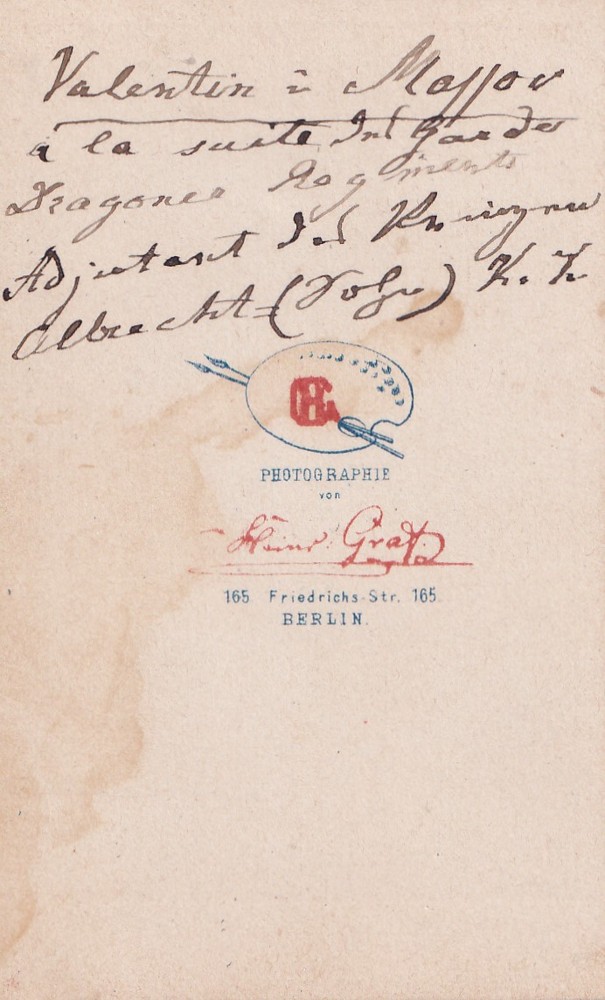 Valentin v Massow
à la suite des Garde
Dragoner Regiments
Adjutant des Prinzen
Albrecht = (Sohn) K. H.
GH
PHOTOGRAPHIE
von
Heinr. Graf
165. Friedrichs-Str. 165.
BERLIN.